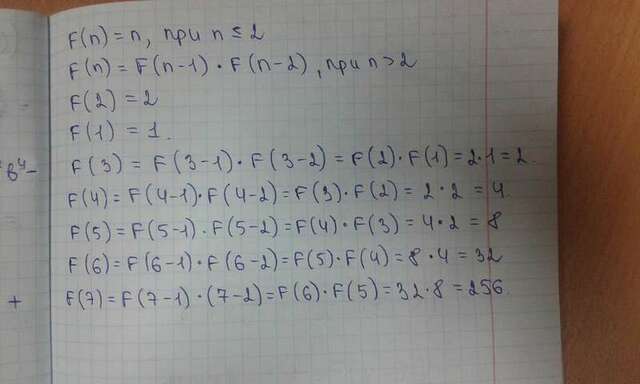 F(n) = n, при n ≤ 2
F(n) = F(n-1) · F(n-2), при n > 2
F(2) = 2
F(1) = 1.
F(3) = F(3-1) · F(3-2) = F(2) · F(1) = 2·1 = 2.
F(4) = F(4-1) · F(4-2) = F(3) · F(2) = 2 · 2 = 4
F(5) = F(5-1) · F(5-2) = F(4) · F(3) = 4·2 = 8
F(6) = F(6-1) · F(6-2) = F(5) · F(4) = 8 · 4 = 32
+ F(7) = F(7-1) · (7-2) = F(6) · F(5) = 32·8 = 256.